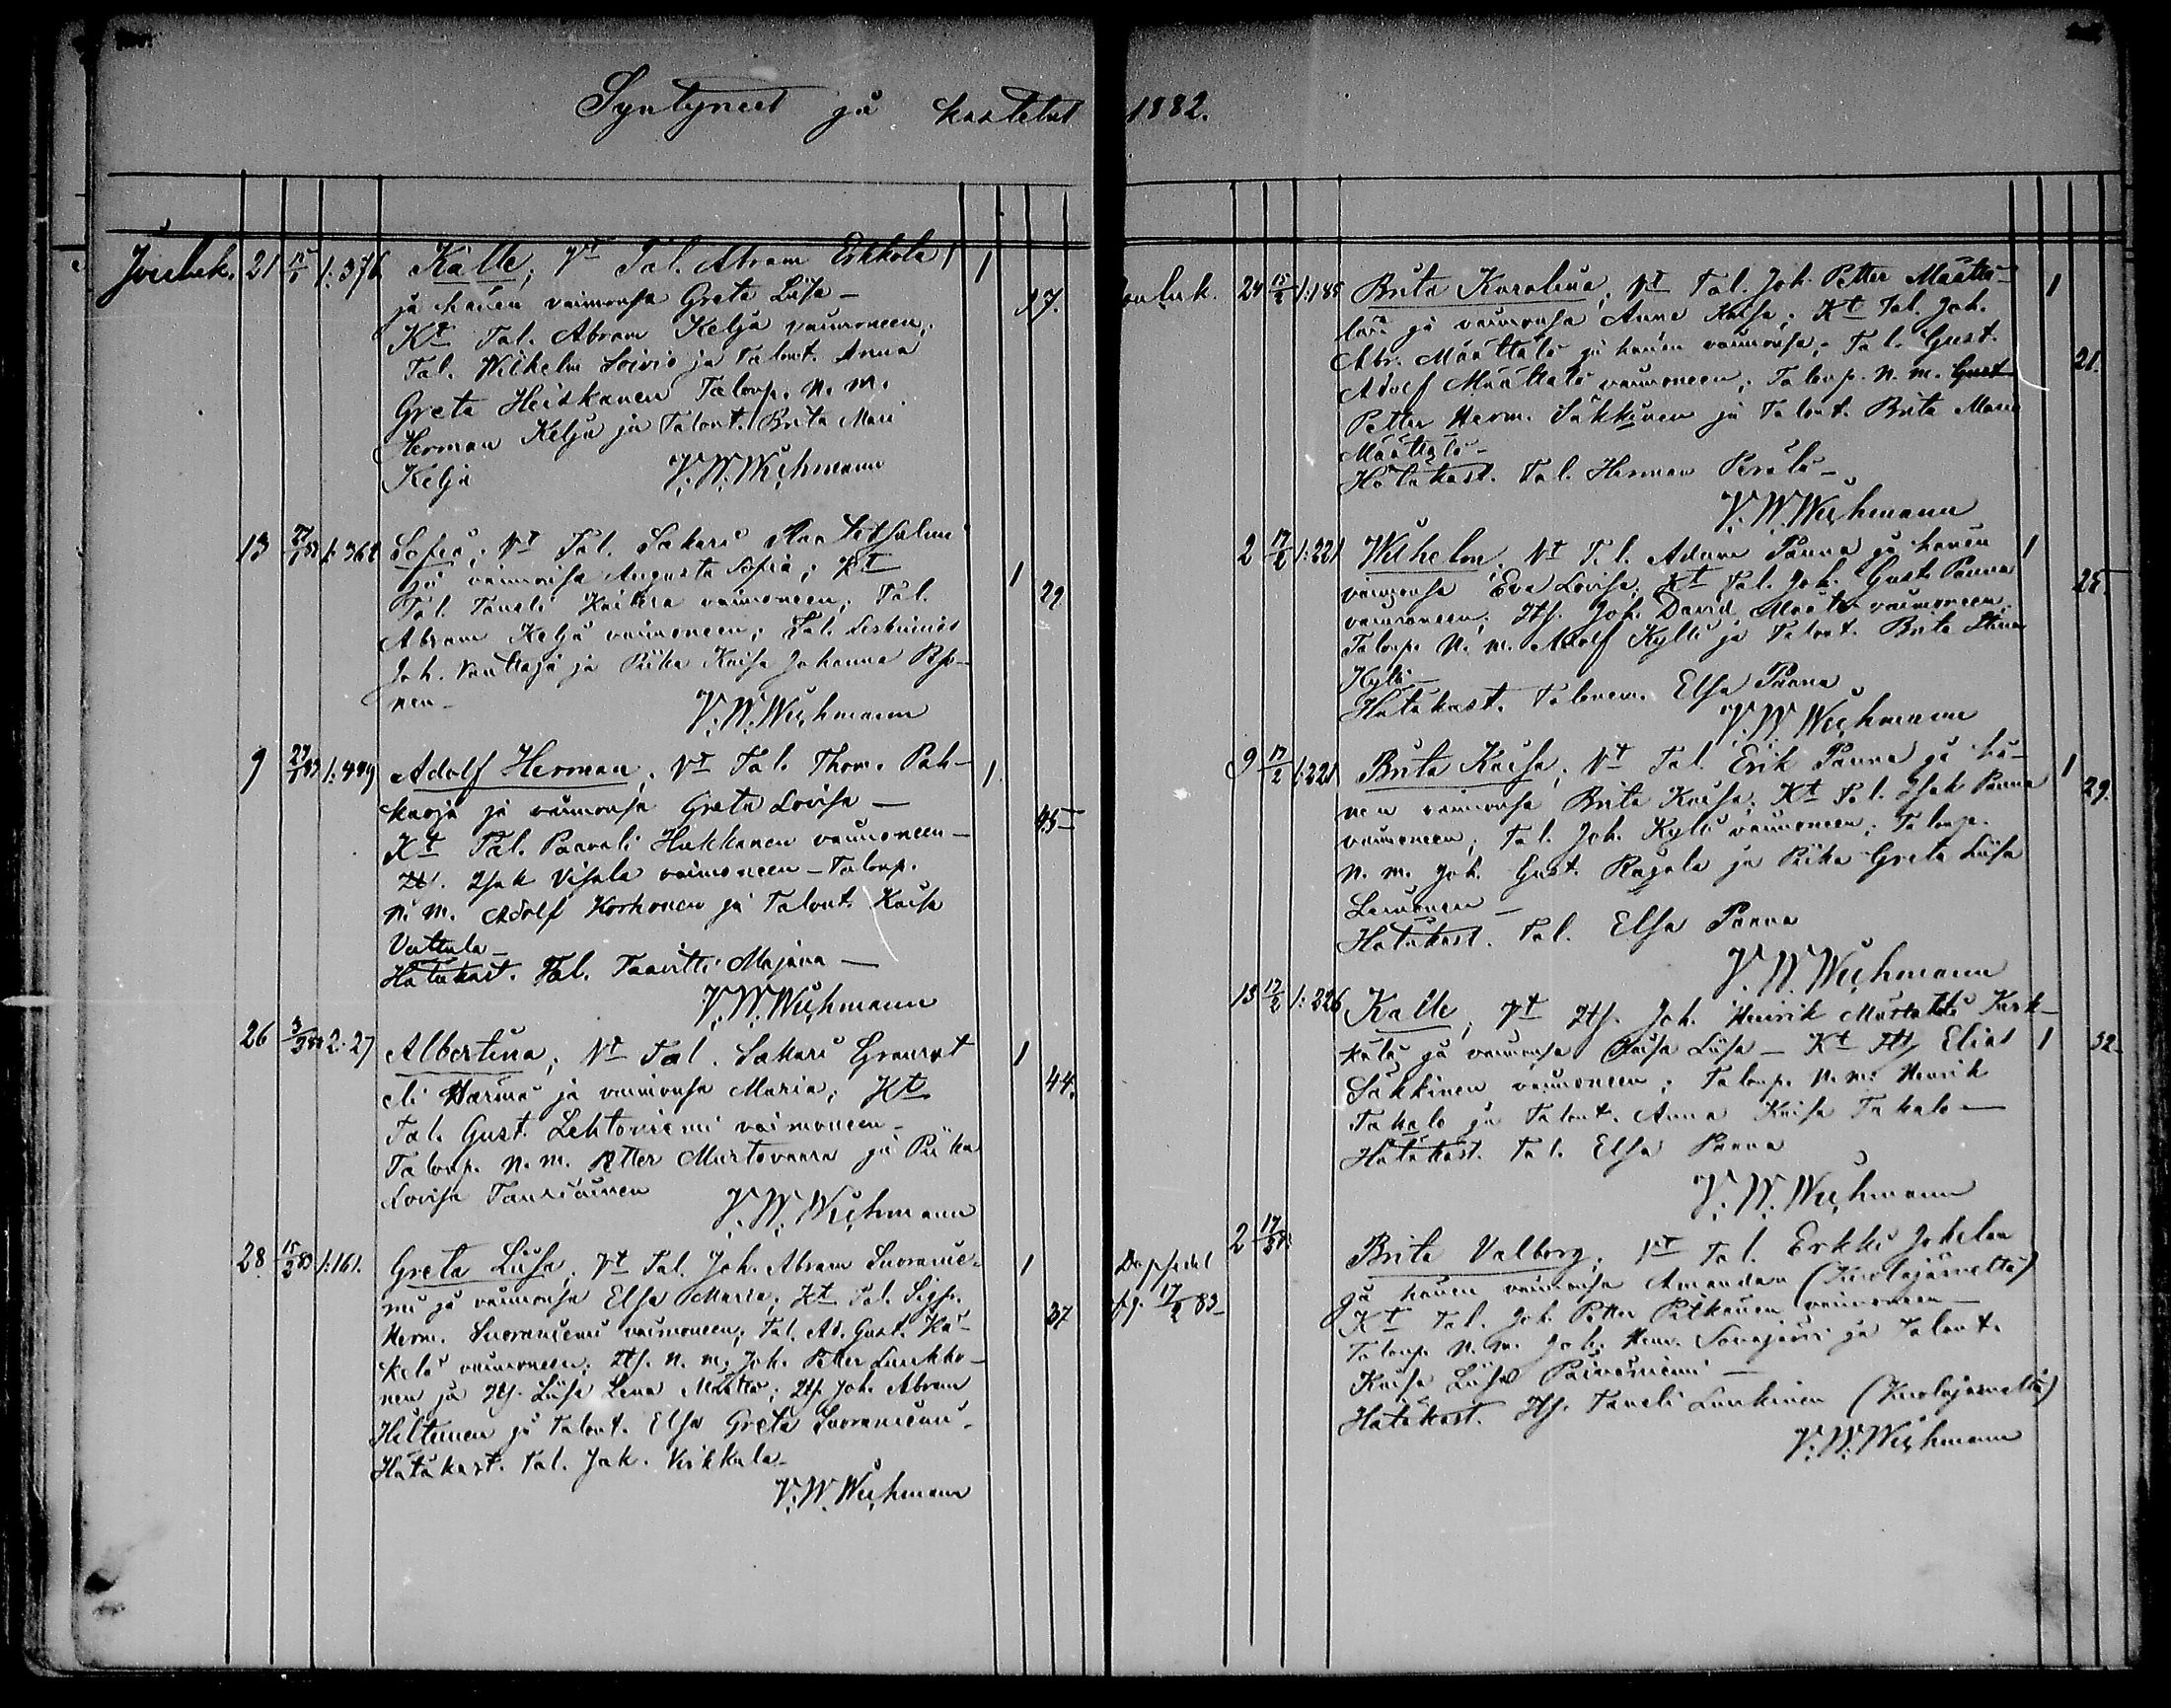 Syntyneet ja kastetut 1882.
Jouluk. 21 15/1 1:376 Kalle; Vt Tal. Abram Erkkola 1
ja hänen vaimonsa Greta Liisa – 17.
Kt Tal. Abram Keljä vaimoneen;
Tal. Wilhelm Soivio ja Talont. Anna
Greta Heiskanen Talonp. N. M.
Herman Keljä ja Talont. Brita Mari
Keljä V. W. Wichmann
13 27/1 83 1:368 Sofia; Vt Tal. Sakari
ja vaimonsa Augusta Sofia; Kt 1
Tal. Taneli Kaitera vaimoneen; Tal. 29
Abram Keljä vaimoneen; Tal. Leskimies
Joh. Vanttaja ja Piika Kaisa Johanna
nen – V. W. Wichmann
9 27/1 83 1:449 Adolf Herman; Vt Tal. Thom. Pah- 1
karja ja vaimonsa Greta Lovisa –
Kt Tal. Paavali Hakkanen vaimoneen – 45
Isak Visala vaimoneen – Talonp.
N. M. Adolf Korhonen ja Talont. Kaisa
Vattula –
Hätäkast. Tal. Taavitti Majava –
V. W. Wichmann
26 3/2 83 2:27 Albertina; Vt Tal. Sakari Granrot 1
eli Harima ja vaimonsa Maria; Kt 44.
Tal. Gust. Lehtoniemi vaimoneen –
Talonp. N. M. Petter Murtovaara ja Piika
Lovisa Tauriainen V. W. Wichmann
28 15/2 83 1:161. Greta Liisa; Vt Tal. Joh. Abram Suoranie- 1
mi ja vaimonsa Elsa Maria; Kt Tal. Sigfr.
Herm. Suoraniemi vaimoneen; Tal. Ad. Gust. Kä- 37
kelä vaimoneen; Its. N. M. Joh. Petter Lunkko-
nen ja Its. Liisa Lena Määttä; Its. Joh. Abram
Hiltunen ja Talont. Elsa Greta Suoraniemi –
Hätäkast. Tal. Jak. Virkkula –
V. W. Wichmann
Jouluk. 24 15/2 1:185 Brita Karolina; Vt Tal. Joh. Petter Määttä- 1
län ja vaimonsa Anna Kaisa; Kt Tal. Joh.
Abr. Määttälä ja hänen vaimonsa; Tal. Gust.
Adolf Määttälä vaimoneen; Talonp. N. M. Gust 21.
Petter Herm. Säkkinen ja Talont. Brita Maria
Määttälä –
Hätäkast. Tal. Herman Perälä –
V. W. Wichmann
2 17/2 1:221 Wilhelm; Vt Tal. Adam Panna ja hänen 1
vaimonsa Eva Lovisa; Kt Tal. Joh. Gust. Panna 25.
vaimoneen; Its. Joh. David Määttä vaimoneen;
Talonp. N. M. Adolf Kylli ja Talont. Brita Stina
Kylli –
Hätäkast. Talonem. Elsa Panna
V. W. Wichmann
9 17/2 1:221 Brita Kaisa; Vt Tal. Erik Panna ja hä- 1
nen vaimonsa Brita Kaisa; Kt Tal. Isak Panna 29.
vaimoneen; Tal. Joh. Kylli vaimoneen; Talonp.
N. M. Joh. Gust. Rajala ja Piika Greta Liisa
Lämonen –
Hätäkast. Tal. Elsa Panna
V. W. Wichmann
13 17/2 1:226 Kalle; Vt Its. Joh. Henrik Mustakki
ja vaimonsa Kaisa Liisa – Kt Its. Elias 1 32.
Säkkinen vaimoneen; Talonp. N. M. Henrik
Takalo ja Talont. Anna Kaisa Takalo –
Hätäkast. Tal. Elsa Panna
V. W. Wichmann
2 17/2 83 Brita Valborg; Vt Tal. Erkki Jokelan
Dopsedel ja hänen vaimonsa Amandan (Kuolajärveltä)
17/2 83 – Kt Tal. Joh. Petter Pitkänen vaimoneen –
Talonp. N. M. Joh. Henr. Sovajärvi ja Talont.
Kaisa Liisa Päiväniemi –
Hätäkast. Its. Taneli Lunkinen (Kuolajärveltä)
V. W. Wichmann